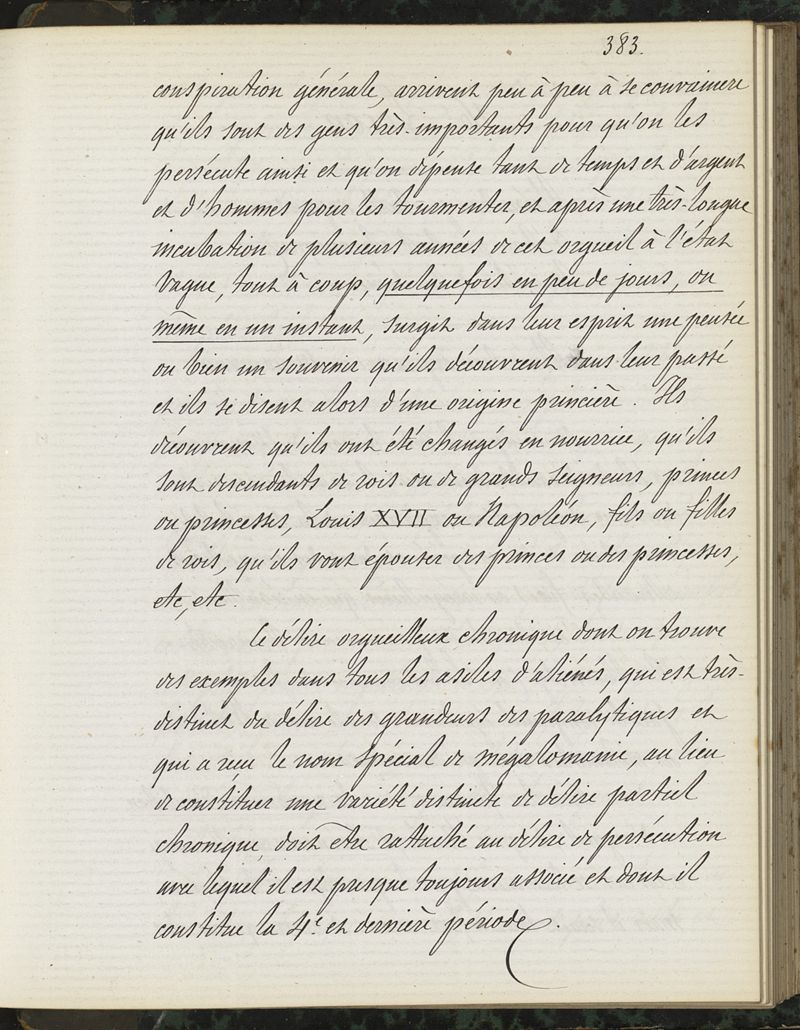 383.
conspiration générale, arrivent peu à peu à se convaincre
qu'ils sont des gens très-importants pour qu'on les
persécute ainsi et qu'on dépense tant de temps et d'argent
et d'hommes pour les tourmenter, et après une très-longue
incubation de plusieurs années de cet orgueil à l'état
vague, tout à coup, quelquefois en peu de jours, ou
même en un instant, surgit dans leur esprit une pensée
ou bien un souvenir qu'ils découvrent dans leur passé
et ils se disent alors d'une origine princière. Ils
découvrent qu'ils ont été changés en nourrice, qu'ils
sont descendants de rois ou de grands seigneurs, princes
ou princesses, Louis XVII ou Napoléon, fils ou filles
de rois, qu'ils vont épouser des princes ou des princesses,
etc, etc.
Le délire orgueilleux chronique dont on trouve
des exemples dans tous les asiles d'aliénés, qui est très-
distinct du délire des grandeurs des paralytiques et
qui a reçu le nom spécial de mégalomanie, au lieu
de constituer une variété distincte de délire partiel
chronique, doit être rattaché au délire de persécution
avec lequel il est presque toujours associé et dont il
constitue la 4e et dernière période.